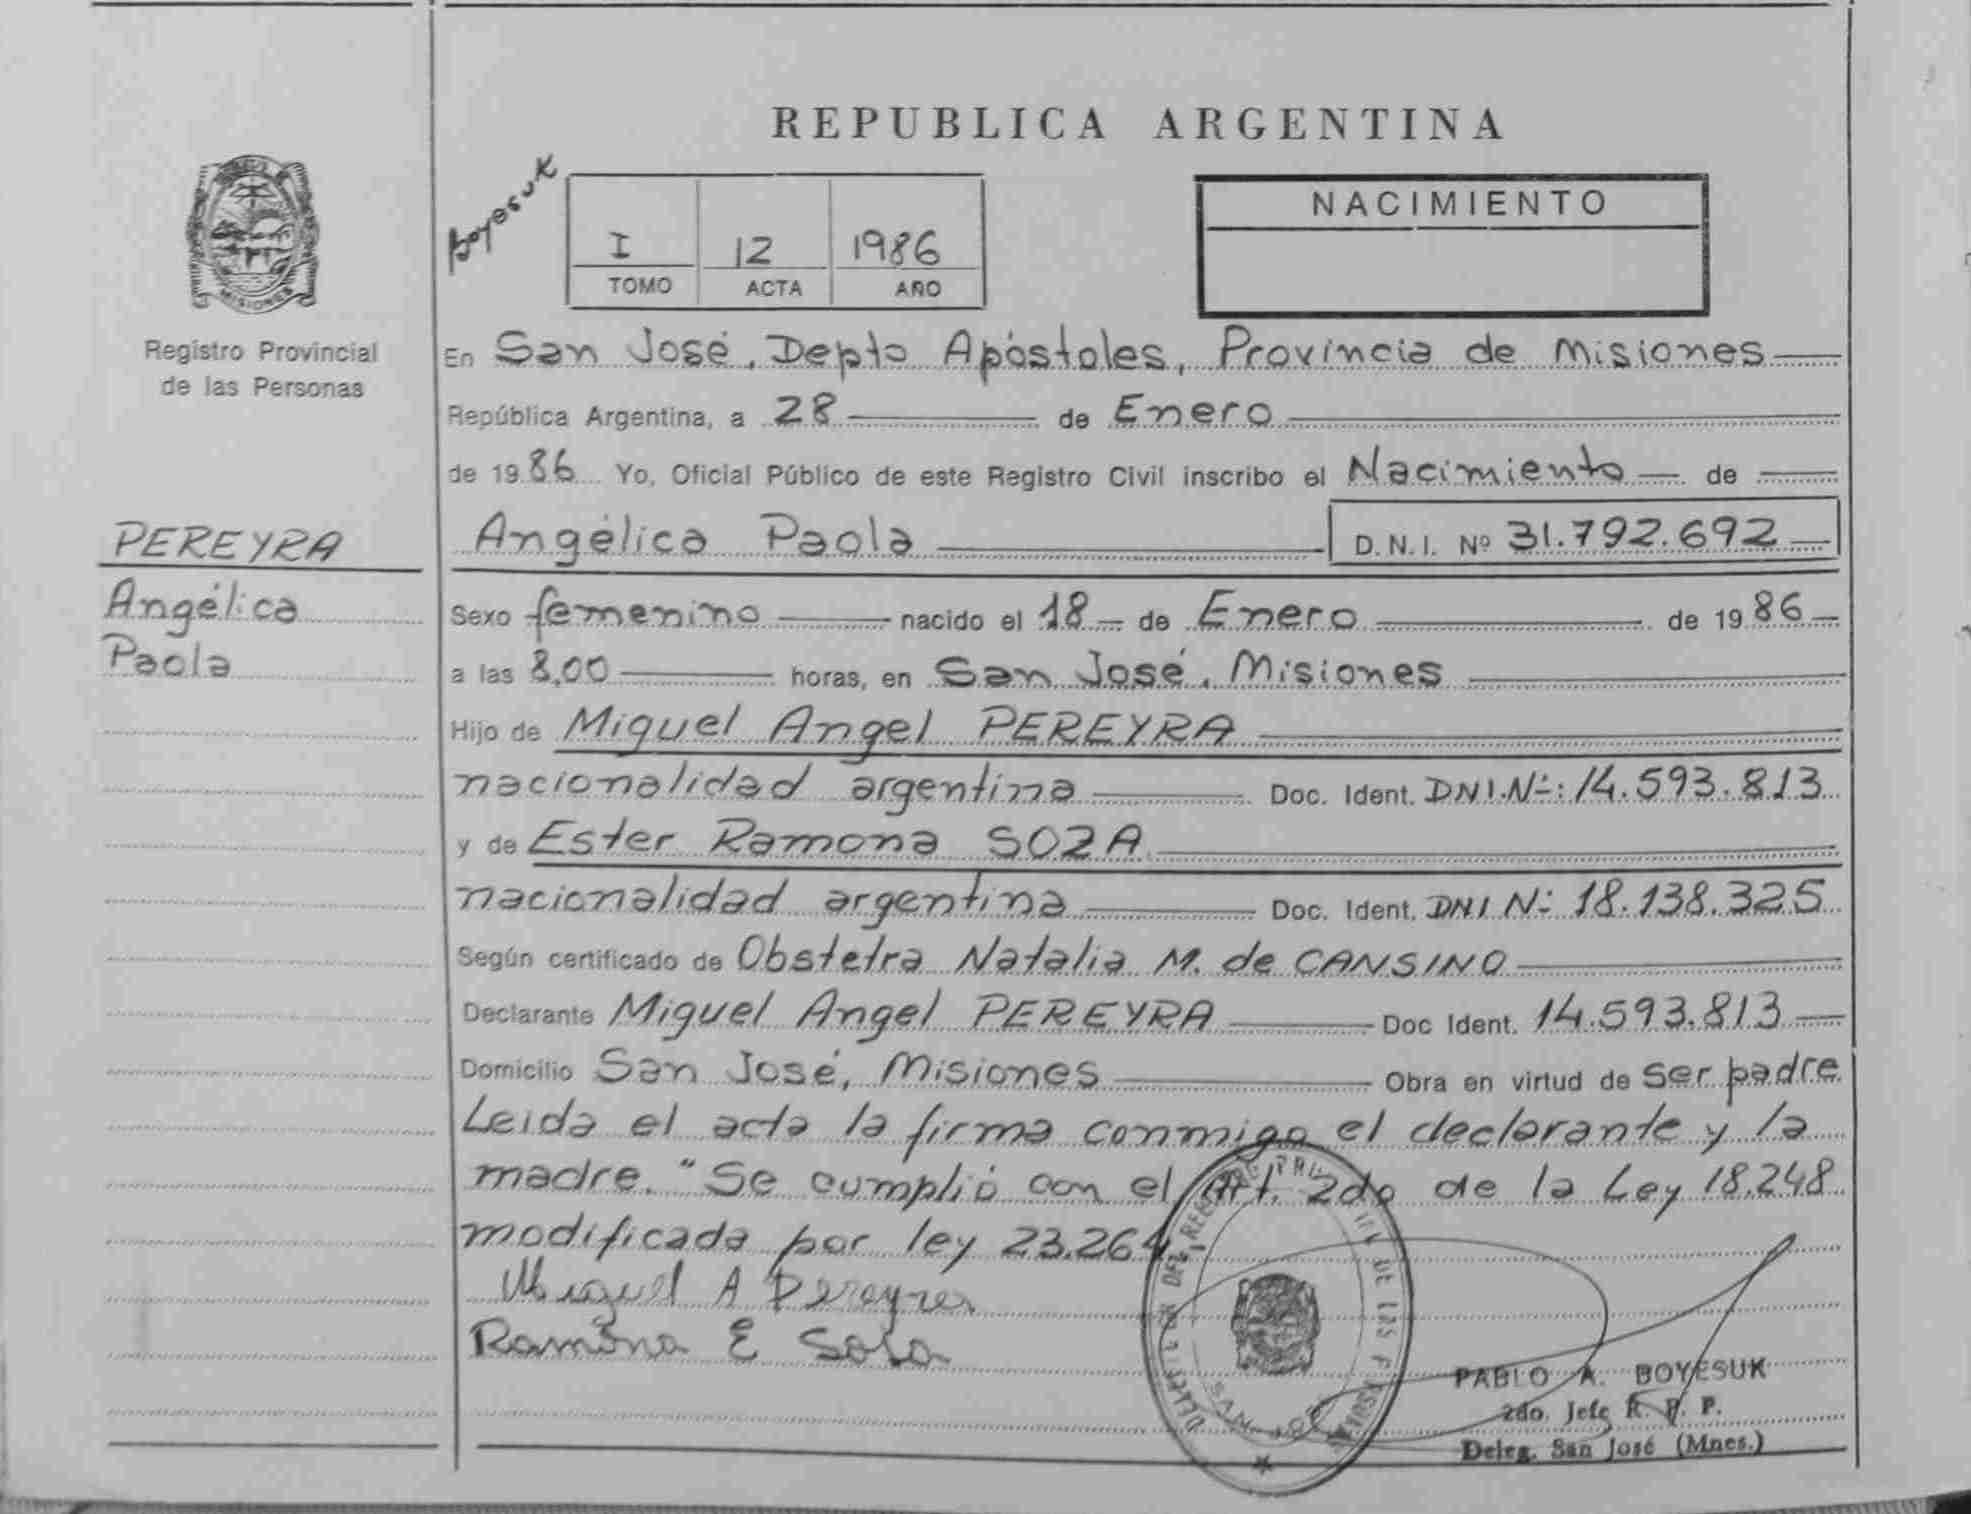 REPUBLICA ARGENTINA
Boyesuk
I 12 1986
TOMO ACTA AÑO
NACIMIENTO
MISIONES
Registro Provincial
de las Personas
PEREYRA
Angélica
Paola
En San José, Depto Apóstoles, Provincia de Misiones
República Argentina, a 28 de Enero
de 1986 Yo, Oficial Público de este Registro Civil inscribo el Nacimiento de
Angélica Paola D.N.I. Nº 31.792.692
Sexo femenino nacido el 18 de Enero de 1986
a las 8,00 horas, en San José, Misiones
Hijo de Miguel Angel PEREYRA
nacionalidad argentina Doc. Ident. DNI.Nº: 14.593.813
y de Ester Ramona SOZA
nacionalidad argentina Doc. Ident. DNI Nº 18.138.325
Según certificado de Obstetra Natalia M. de CANSINO
Declarante Miguel Angel PEREYRA Doc Ident. 14.593.813
Domicilio San José, Misiones Obra en virtud de ser padre
Leida el acta la firma conmigo el declarante y la
madre. "Se cumplió con el Art. 2do de la Ley 18.248
modificada por ley 23.264
Miguel A Pereyra
Ramona E Sosa
SAN JOSE
PABLO A. BOYESUK
2do. Jefe R. P. P.
Deleg. San José (Mnes.)